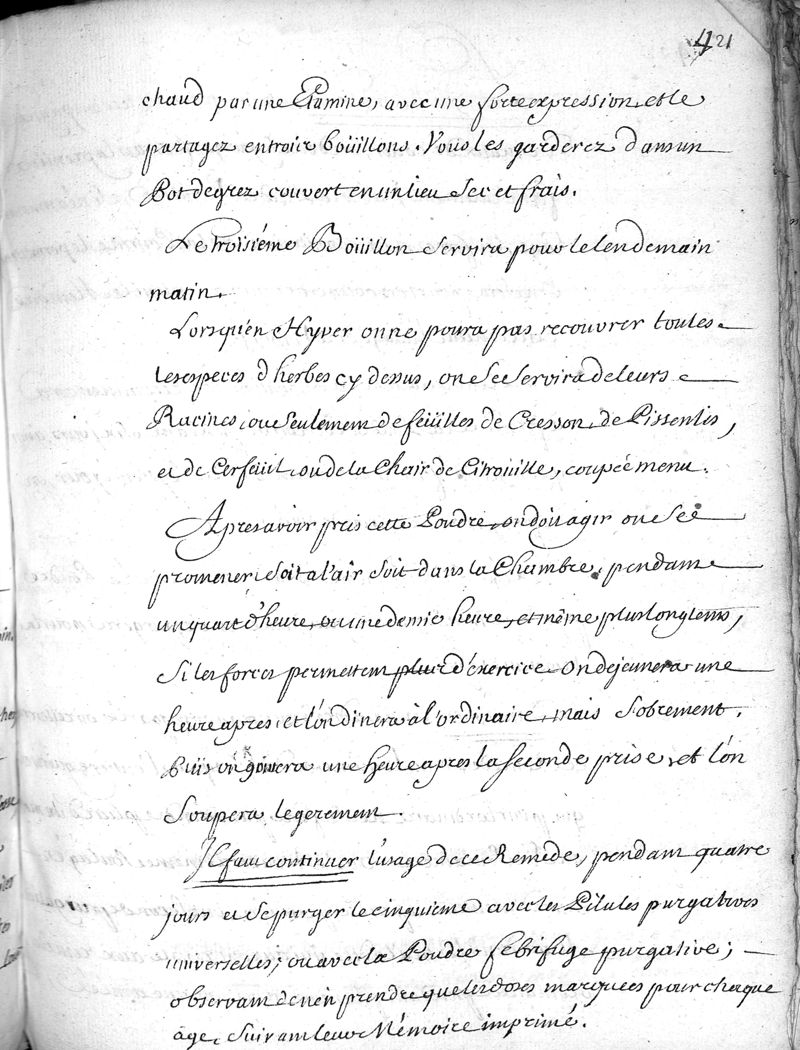 421
chaud par une Etamine, avec une forte expression et le
partagez en trois boüillons. Vous les garderez dans un
Pot de grez couvert en un lieu sec et frais.
Le troisiéme Boüillon servira pour le lendemain
matin.
Lorsqu'en Hyver on ne poura pas recouvrer toutes
les especes d'herbes cy dessus, on se servira de leurs
Racines, ou seulement de feüilles de Cresson, de Pissenlis,
et de Cerfeüil ou de la Chair de Citroüille, coupée menu.
Apres avoir pris cette Poudre, on doit agir ou se
promener, soit a l'air soit dans la Chambre, pendant
un quart d'heure, ou une demie heure, et même plus longtems,
si les forces permettent d'exercice. On dejeunera une
heure apres, et l'on dinera à l'ordinaire, mais sobrement.
Puis on goutera une heure apres la seconde prise, et l'on
soupera legerement.
Il faut continuer l'usage de ce Remede, pendant quatre
jours et se purger le cinquieme avec les Pilules purgatives
universelles; ou avec la Poudre febrifuge purgative;
observant de n'en prendre que les doses marquées pour chaque
âge, suivant leur Mémoire imprimé.